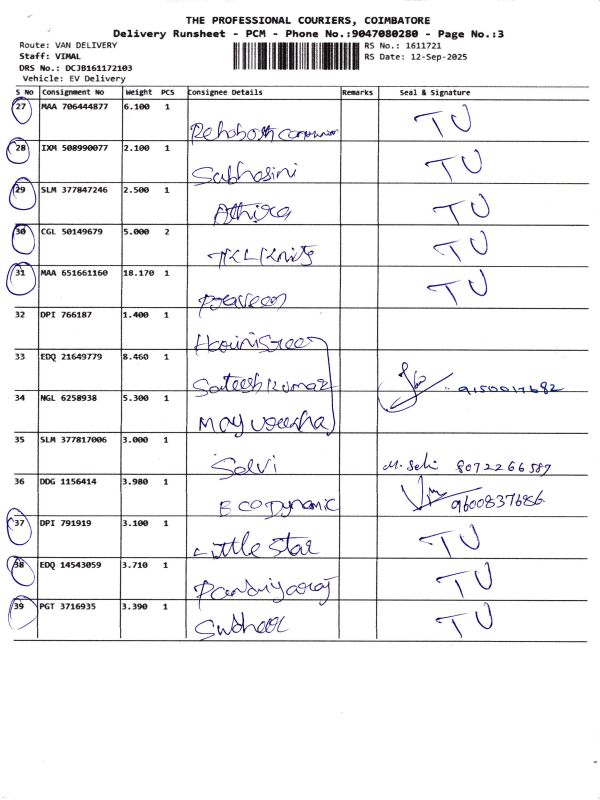 THE PROFESSIONAL COURIERS, COIMBATORE
Delivery Runsheet - PCM - Phone No.:9047080280 - Page No.:3
Route: VAN DELIVERY RS No.: 1611721
Staff: VIMAL RS Date: 12-Sep-2025
DRS No.: DCJB161172103
Vehicle: EV Delivery
S No Consignment No Weight PCS Consignee Details Remarks Seal & Signature
27 MAA 706444877 6.100 1 TU
Rehoboth
28 IXM 508990077 2.100 1 TU
Sabhasini
29 SLM 377847246 2.500 1 TU
Athira
30 CGL 50149679 5.000 2 TU
TKL Knits
31 MAA 651661160 18.170 1 TU
Praveen
32 DPI 766187 1.400 1
Harinisree
33 EDQ 21649779 8.460 1
Sateesh Kumar 9150017682
34 NGL 6258938 5.300 1
35 SLM 377817006 3.000 1
Selvi M. Selvi 8072266587
36 DDG 1156414 3.980 1
ECODynamic 9600837686
37 DPI 791919 3.100 1 TU
Little Star
38 EDQ 14543059 3.710 1 TU
Pandiyaraj
39 PGT 3716935 3.390 1 TU
Sudheer